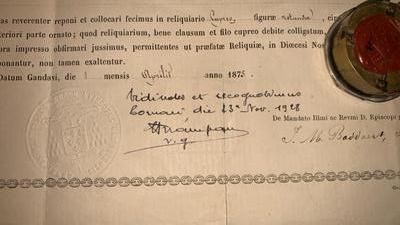 as reverenter reponi et collocari fecimus in reliquiario Cupreo figuræ rotundæ,
teriori parte ornato; quod reliquiarium, bene clausum et filo cupreo debite colligatum,
ora impresso obfirmari jussimus, permittentes ut præfatæ Reliquiæ, in Diœcesi Nos
ponantur, non tamen exaltentur.
Datum Gandavi, die 1 mensis Aprilis anno 1875.
Vidimus et recognovimus
die 23a Nov. 1928
v.g.
De Mandato Illmi ac Revmi D. Episcopi
J. M.